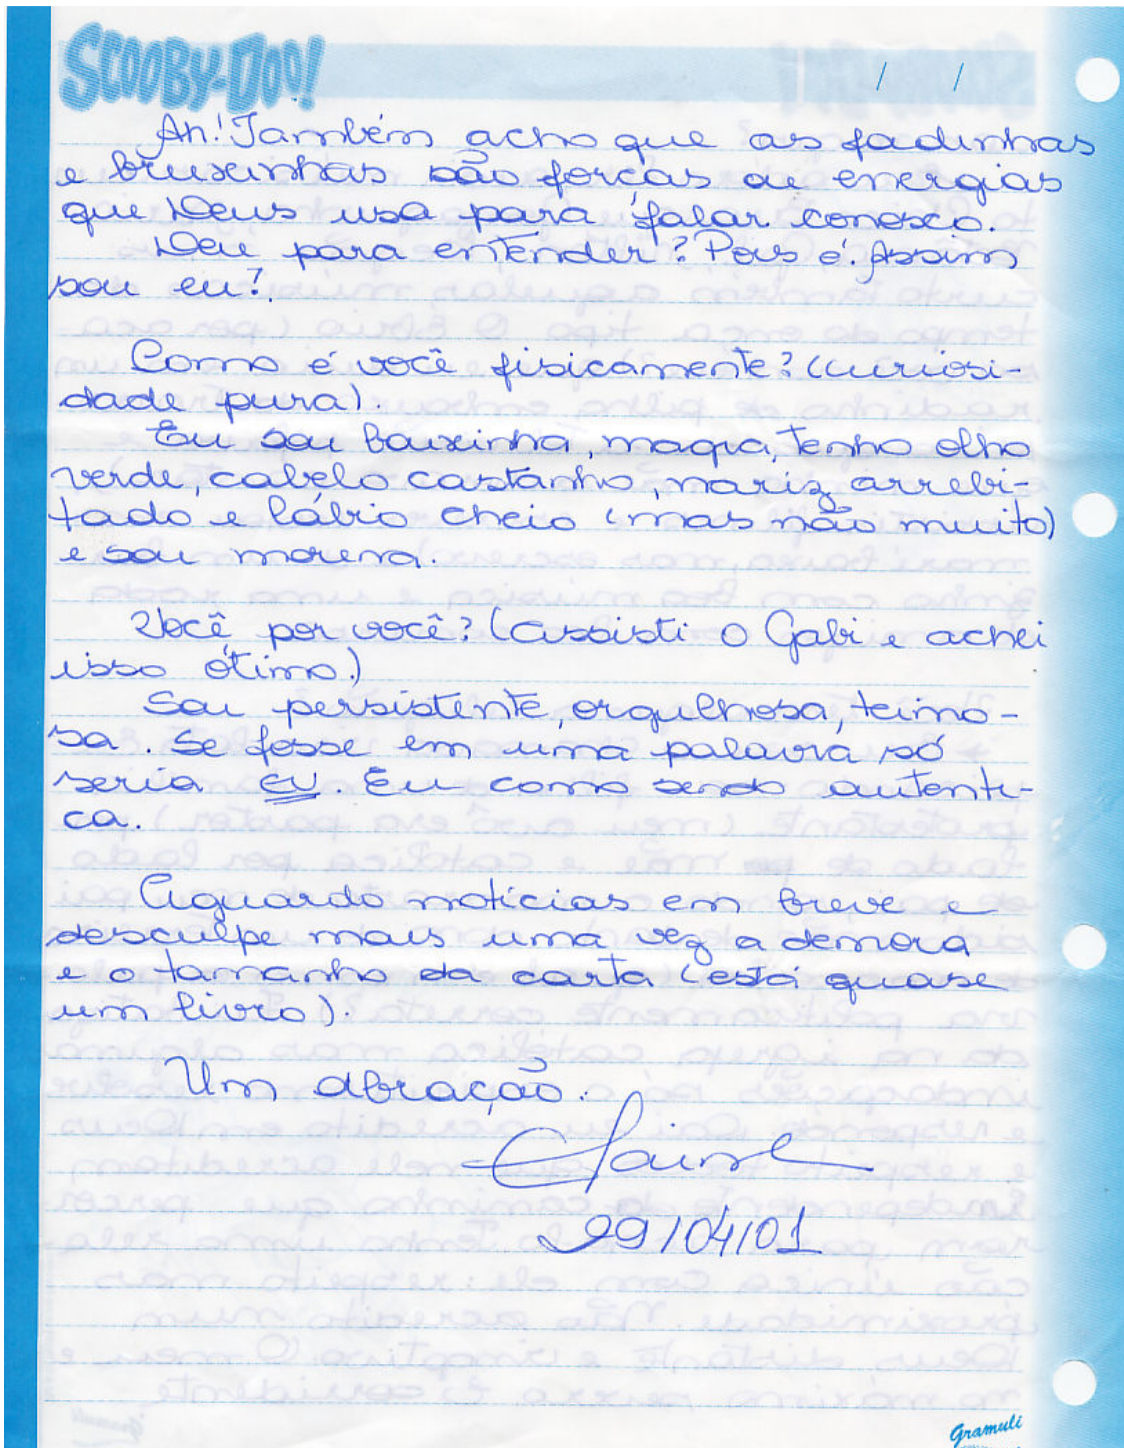 SCOOBY-DOO!
/ /
Ah! Também acho que as fadinhas
e bruxinhas são forças ou energias
que Deus usa para falar conosco.
Deu para entender? Pois é. Assim
sou eu!
Como é você fisicamente? (curiosi-
dade pura).
Eu sou baixinha, magra, tenho olho
verde, cabelo castanho, nariz arrebi-
tado e lábio cheio (mas não muito)
e sou morena.
Você por você? (assisti o Gabi e achei
isso ótimo.)
Sou persistente, orgulhosa, teimo-
sa. Se fosse em uma palavra só
seria EU. Eu como sendo autenti-
ca.
Aguardo notícias em breve e
desculpe mais uma vez a demora
e o tamanho da carta (está quase
um livro).
Um abração.
Elaine
29/04/01
Gramuli